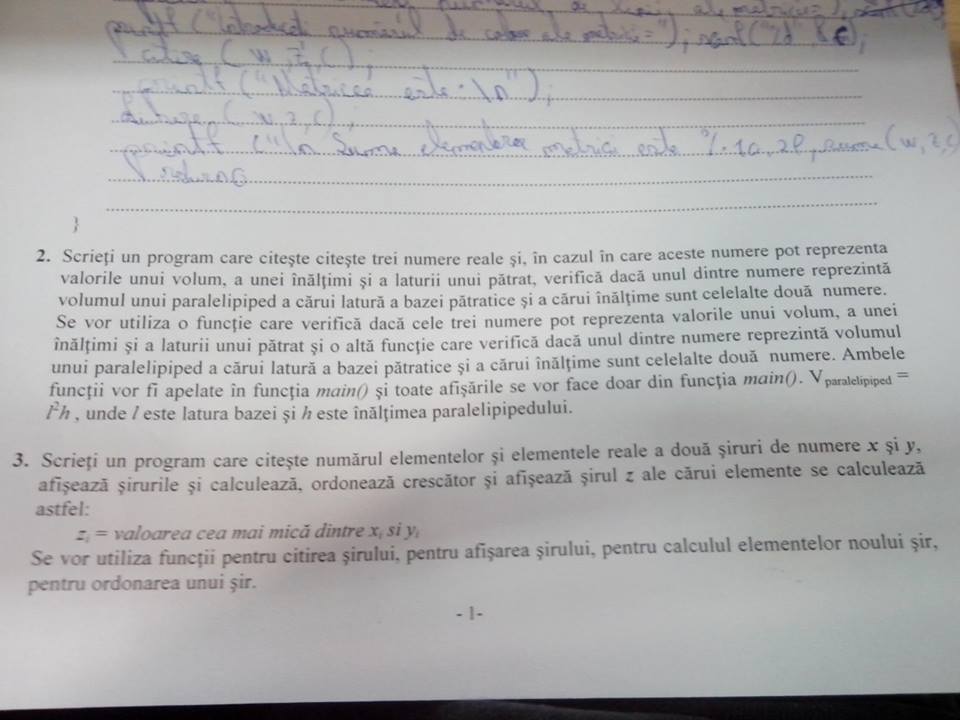 printf ("Introduceti numărul de coloane ale matricei="); scanf("%d" &c);
citire (w, z, c);
printf ("Matricea este \n");
(w, z, c);
printf ("\n Suma elementelor matricei este %.
return 0
}
2. Scrieţi un program care citeşte citeşte trei numere reale şi, în cazul în care aceste numere pot reprezenta
valorile unui volum, a unei înălţimi şi a laturii unui pătrat, verifică dacă unul dintre numere reprezintă
volumul unui paralelipiped a cărui latură a bazei pătratice şi a cărui înălţime sunt celelalte două numere.
Se vor utiliza o funcţie care verifică dacă cele trei numere pot reprezenta valorile unui volum, a unei
înălţimi şi a laturii unui pătrat şi o altă funcţie care verifică dacă unul dintre numere reprezintă volumul
unui paralelipiped a cărui latură a bazei pătratice şi a cărui înălţime sunt celelalte două numere. Ambele
funcţii vor fi apelate în funcţia main() şi toate afişările se vor face doar din funcţia main(). V paralelipiped =
l²h , unde l este latura bazei şi h este înălţimea paralelipipedului.
3. Scrieţi un program care citeşte numărul elementelor şi elementele reale a două şiruri de numere x şi y,
afişează şirurile şi calculează, ordonează crescător şi afişează şirul z ale cărui elemente se calculează
astfel:
zi = valoarea cea mai mică dintre xi si yi
Se vor utiliza funcţii pentru citirea şirului, pentru afişarea şirului, pentru calculul elementelor noului şir,
pentru ordonarea unui şir.
- 1-